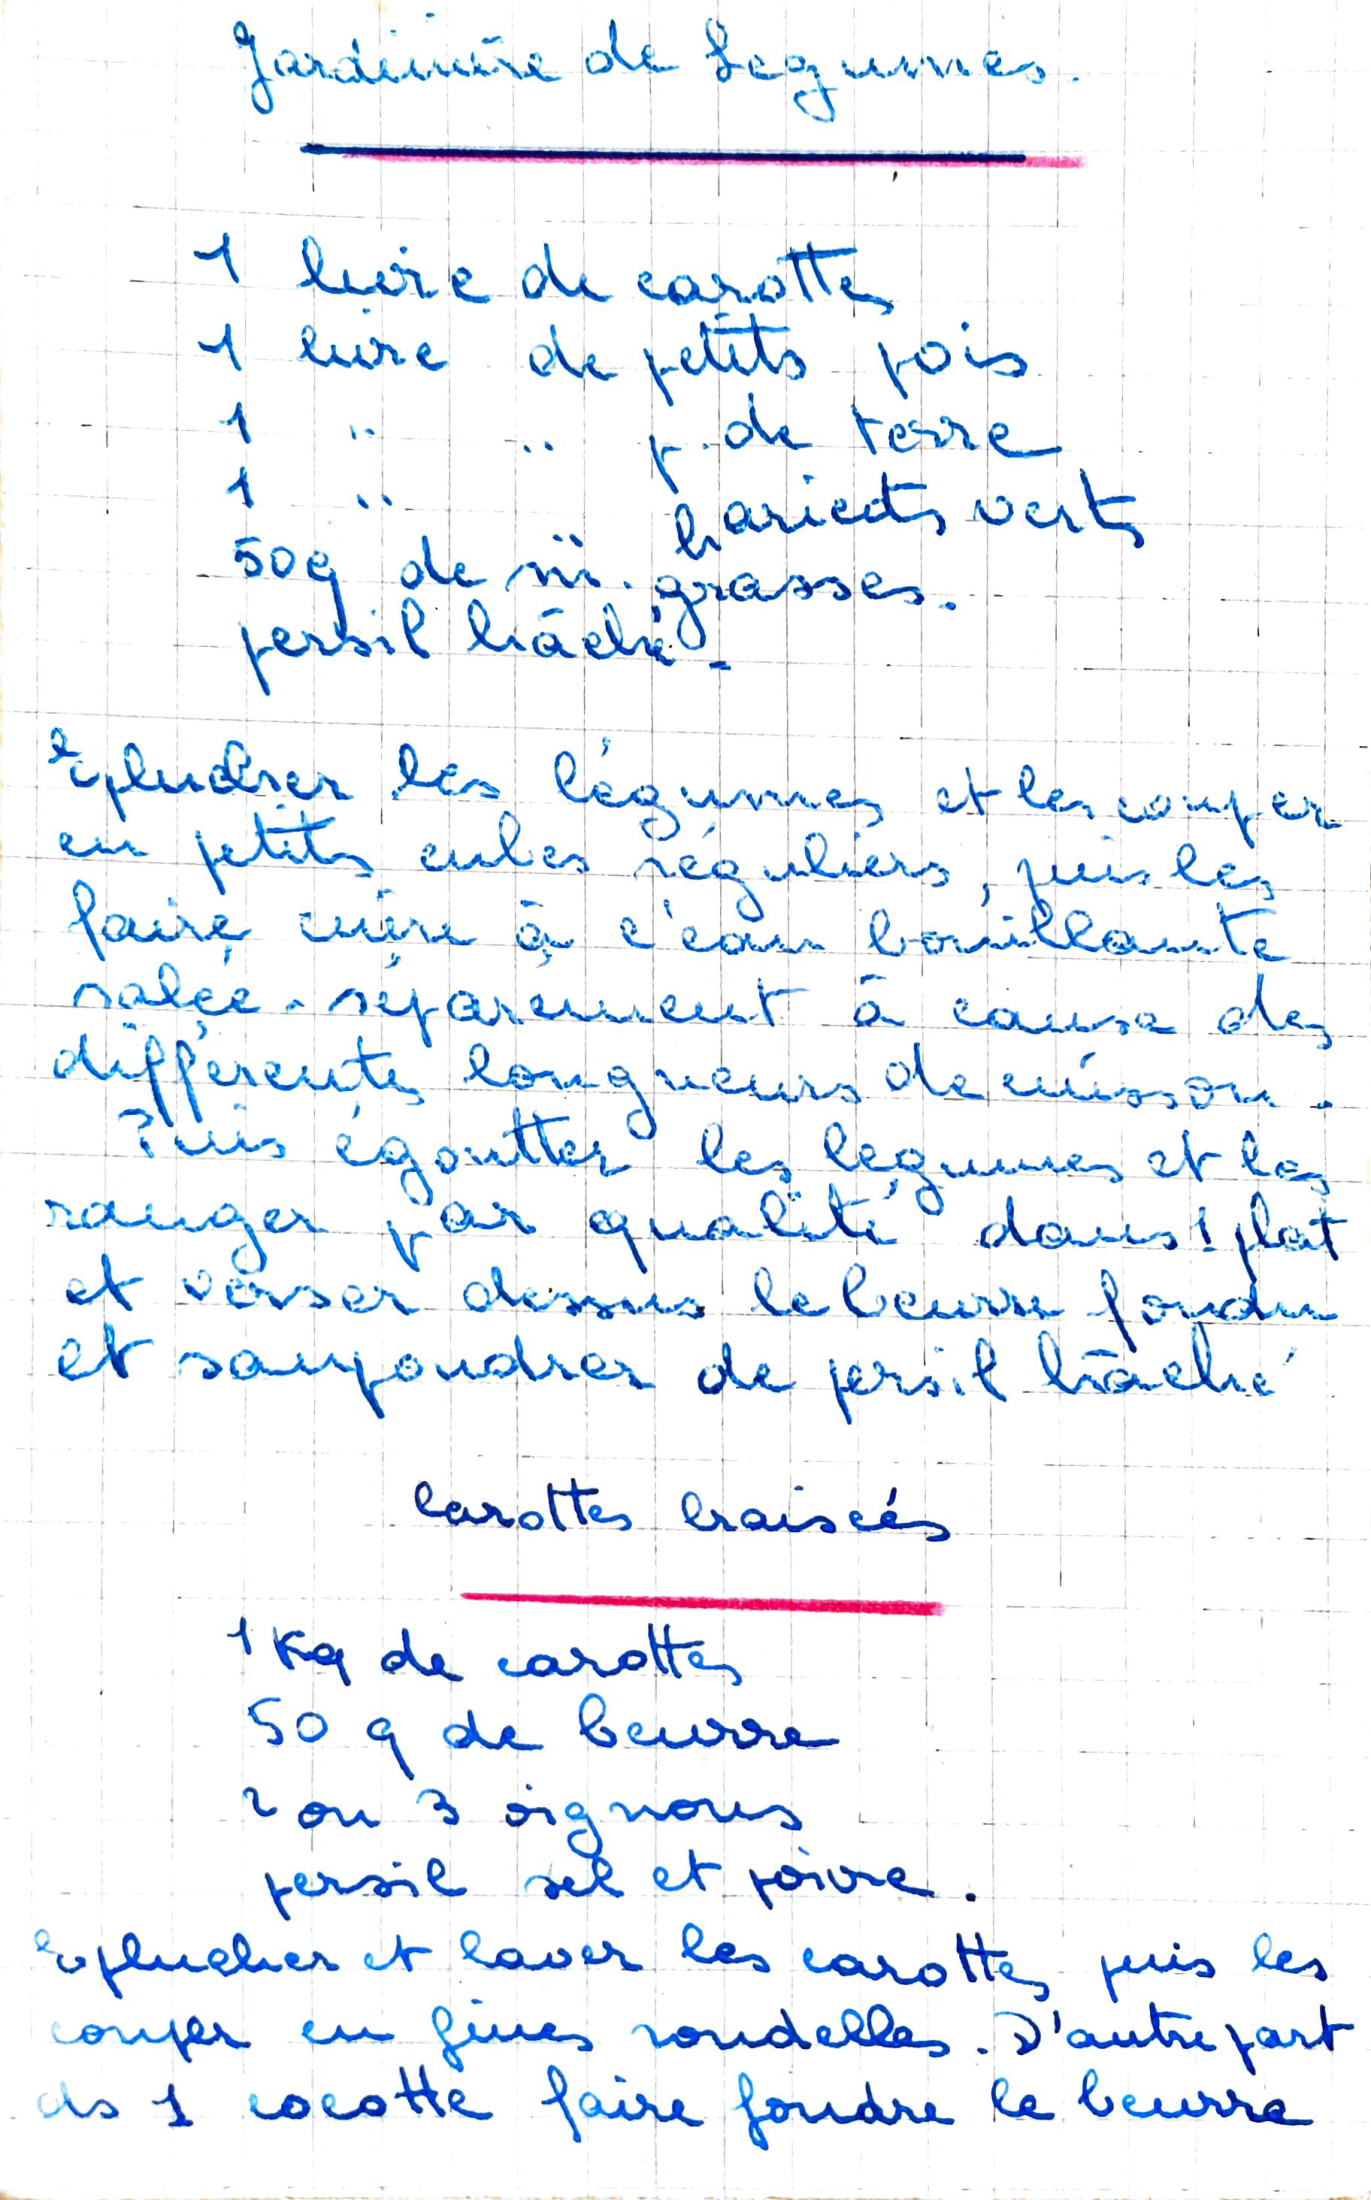 Jardinière de Legumes.
1 livre de carottes
1 livre de petits pois
1 " " p. de terre
1 " haricots verts
50g de m. grasses.
persil hâché.
Eplucher les légumes et les couper
en petits cubes réguliers, puis les
faire cuire à l'eau bouillante
salée. séparement à cause des
différentes longueurs de cuisson.
Puis égoutter les légumes et les
ranger par qualité dans 1 plat
et verser dessus le beurre fondu
et saupoudrer de persil hâché
Carottes braisées
1 Kg de carottes
50 g de beurre
2 ou 3 oignons
persil sel et poivre.
Eplucher et laver les carottes puis les
couper en fines rondelles. D'autre part
ds 1 cocotte faire fondre le beurre